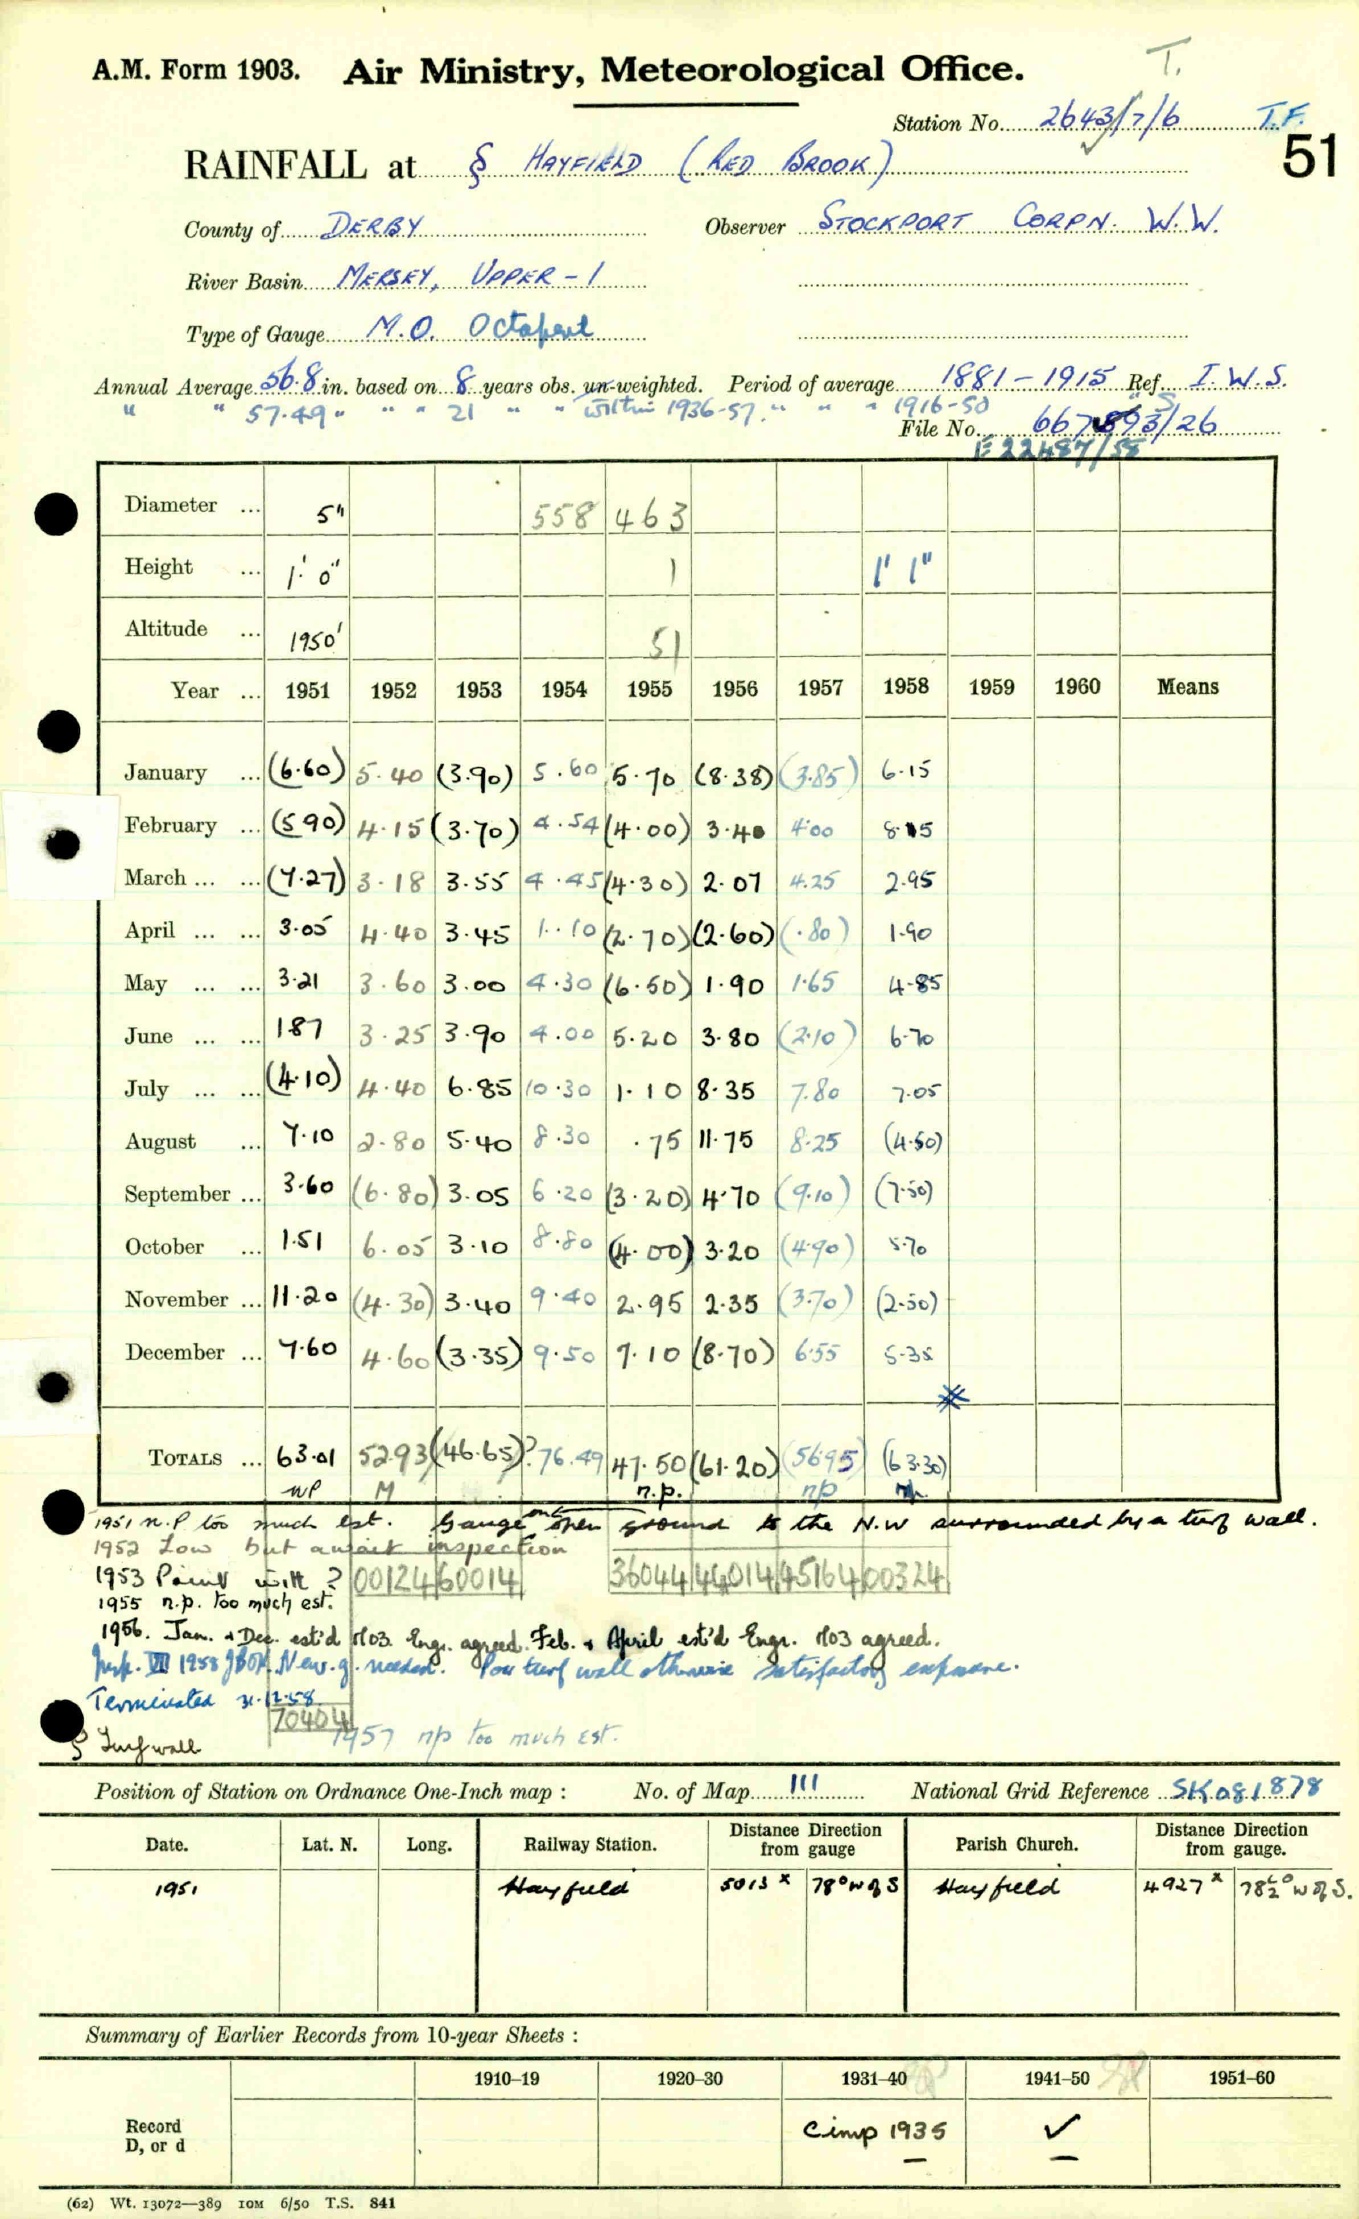 T.
A.M. Form 1903. Air Ministry, Meteorological Office.
Station No. 2643/7/6 T.F.
51
RAINFALL at § HAYFIELD (RED BROOK)
County of DERBY Observer STOCKPORT CORPN. W.W.
River Basin MERSEY, UPPER - 1
Type of Gauge M.O. Octapent
Annual Average 56.8 in. based on 8 years obs. un-weighted. Period of average 1881-1915 Ref. I.W.S.
" " 57.49 " " " 21 " " within 1936-57. " " " 1916-50 " S
File No. 667893/26
E 22487/58
Diameter ... 5" 558 463
Height ... 1' 0" 1 1' 1"
Altitude ... 1950' 51
Year ... 1951 1952 1953 1954 1955 1956 1957 1958 1959 1960 Means
January ... (6.60) 5.40 (3.90) 5.60 5.70 (8.38) (3.85) 6.15
February ... (5 90) 4.15 (3.70) 4.54 (4.00) 3.40 4.00 8.15
March ... ... (7.27) 3.18 3.55 4.45 (4.30) 2.07 4.25 2.95
April ... ... 3.05 4.40 3.45 1.10 (2.70) (2.60) (.80) 1.90
May ... ... 3.21 3.60 3.00 4.30 (6.50) 1.90 1.65 4.85
June ... ... 187 3.25 3.90 4.00 5.20 3.80 (2.10) 6.70
July ... ... (4.10) 4.40 6.85 10.30 1.10 8.35 7.80 7.05
August ... 7.10 2.80 5.40 8.30 .75 11.75 8.25 (4.50)
September ... 3.60 (6.80) 3.05 6.20 (3.20) 4.70 (9.10) (7.50)
October ... 1.51 6.05 3.10 8.80 (4.00) 3.20 (4.90) 5.70
November ... 11.20 (4.30) 3.40 9.40 2.95 2.35 (3.70) (2.50)
December ... 7.60 4.60 (3.35) 9.50 7.10 (8.70) 6.55 5.35
TOTALS ... 63.01 52.93 (46.65)? 76.49 47.50 (61.20) (56.95) (63.30)
NP M n.p. np np.
1951 n.P too much est. Gauge on open ground to the N.W surrounded by a turf wall.
1952 Low but await inspection
1953 Print with ? 00124 60014 36044 44014 45164 00324
1955 n.p. too much est.
1956. Jan. & Dec. est'd M03. Engr. agreed. Feb. & April est'd Engr. M03 agreed.
Insp. VII 1958 New. g. needed. Poor turf wall otherwise satisfactory exposure.
Terminated 31.12.58.
70404
1957 np too much est.
§ Turf wall
Position of Station on Ordnance One-Inch map : No. of Map 111 National Grid Reference SK 081878
Date. Lat. N. Long. Railway Station. Distance from gauge Direction Parish Church. Distance from gauge. Direction
1951 Hayfield 5013 x 78° W of S Hayfield 4927 x 78½° W of S.
Summary of Earlier Records from 10-year Sheets :
1910–19 1920–30 1931–40 1941–50 1951–60
Record D, or d Cimp 1935 ✓
(62) Wt. 13072—389 10M 6/50 T.S. 841